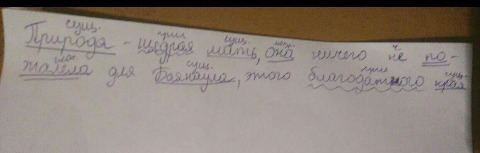 сущ. прил. сущ. мест. ч.
Природа - щедрая мать, она ничего не по-
глаг. сущ. прил. сущ.
жалела для Баянаула, этого благодатного края